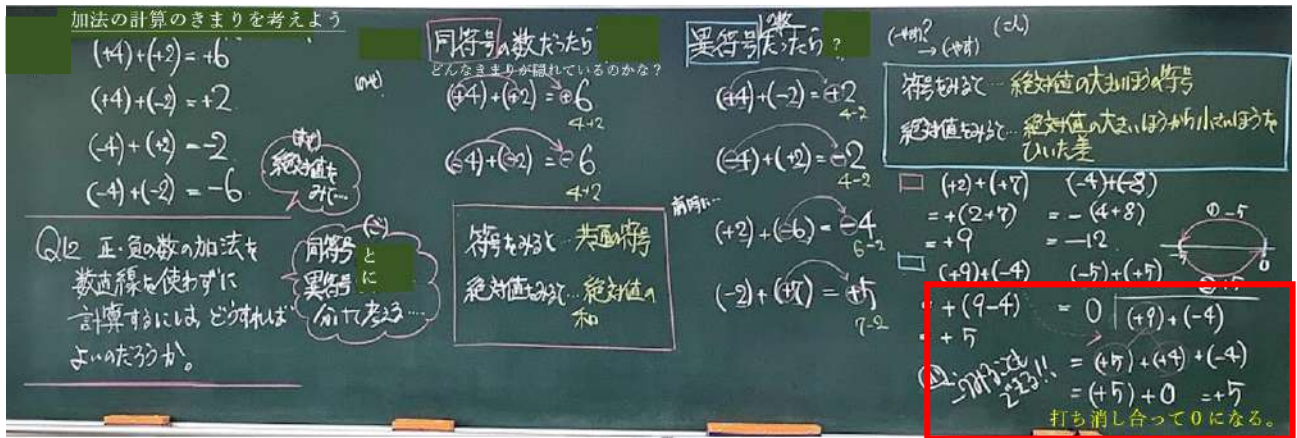 加法の計算のきまりを考えよう
(+4)+(+2)=+6
(+4)+(-2)=+2
(-4)+(+2)=-2
(-4)+(-2)=-6
絶対値を
みて…
Q12 正・負の数の加法を
数直線を使わずに
計算するには、どうすれば
よいのだろうか。
同符号と
異符号に
分けて考える…
同符号の数だったら
どんなきまりが隠れているのかな？
(+4)+(+2)=+6
4+2
(-4)+(-2)=-6
4+2
符号をみると…共通の符号
絶対値をみると…絶対値の
和
異符号の数だったら？
(+4)+(-2)=+2
4-2
(-4)+(+2)=-2
4-2
(+2)+(-6)=-4
6-2
(-2)+(+7)=+5
7-2
符号をみると…絶対値の大きいほうの符号
絶対値をみると…絶対値の大きいほうから小さいほうを
ひいた差
(+2)+(+7)
=+(2+7)
=+9
(-4)+(-8)
=-(4+8)
=-12
(+9)+(-4)
=+(9-4)
=+5
(-5)+(+5)
=0
①-5
-5
0
②+5
(+9)+(-4)
=(+5)+(+4)+(-4)
=(+5)+0 =+5
打ち消し合って０になる。